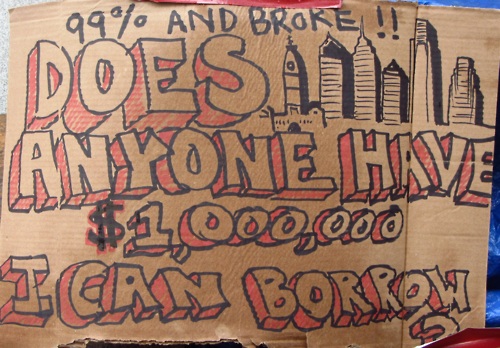 99% AND BROKE !!
DOES
ANYONE HAVE
$1,000,000
I CAN BORROW
?